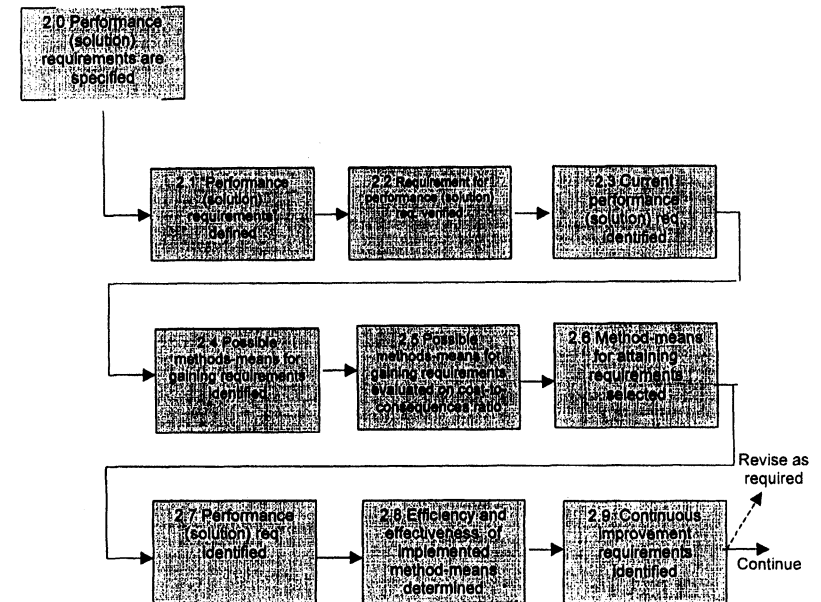 2.0 Performance
(solution)
requirements are
specified
2.1 Performance
(solution)
requirements
defined
2.2 Requirement for
performance (solution)
req. verified
2.3 Current
performance
(solution) req
identified
2.4 Possible
methods-means for
gaining requirements
identified
2.5 Possible
methods-means for
gaining requirements
evaluated on cost-to-
consequences ratio
2.6 Method-means
for attaining
requirements
selected
2.7 Performance
(solution) req
identified
2.8 Efficiency and
effectiveness of
implemented
method-means
determined
2.9 Continuous
improvement
requirements
identified
Revise as
required
Continue